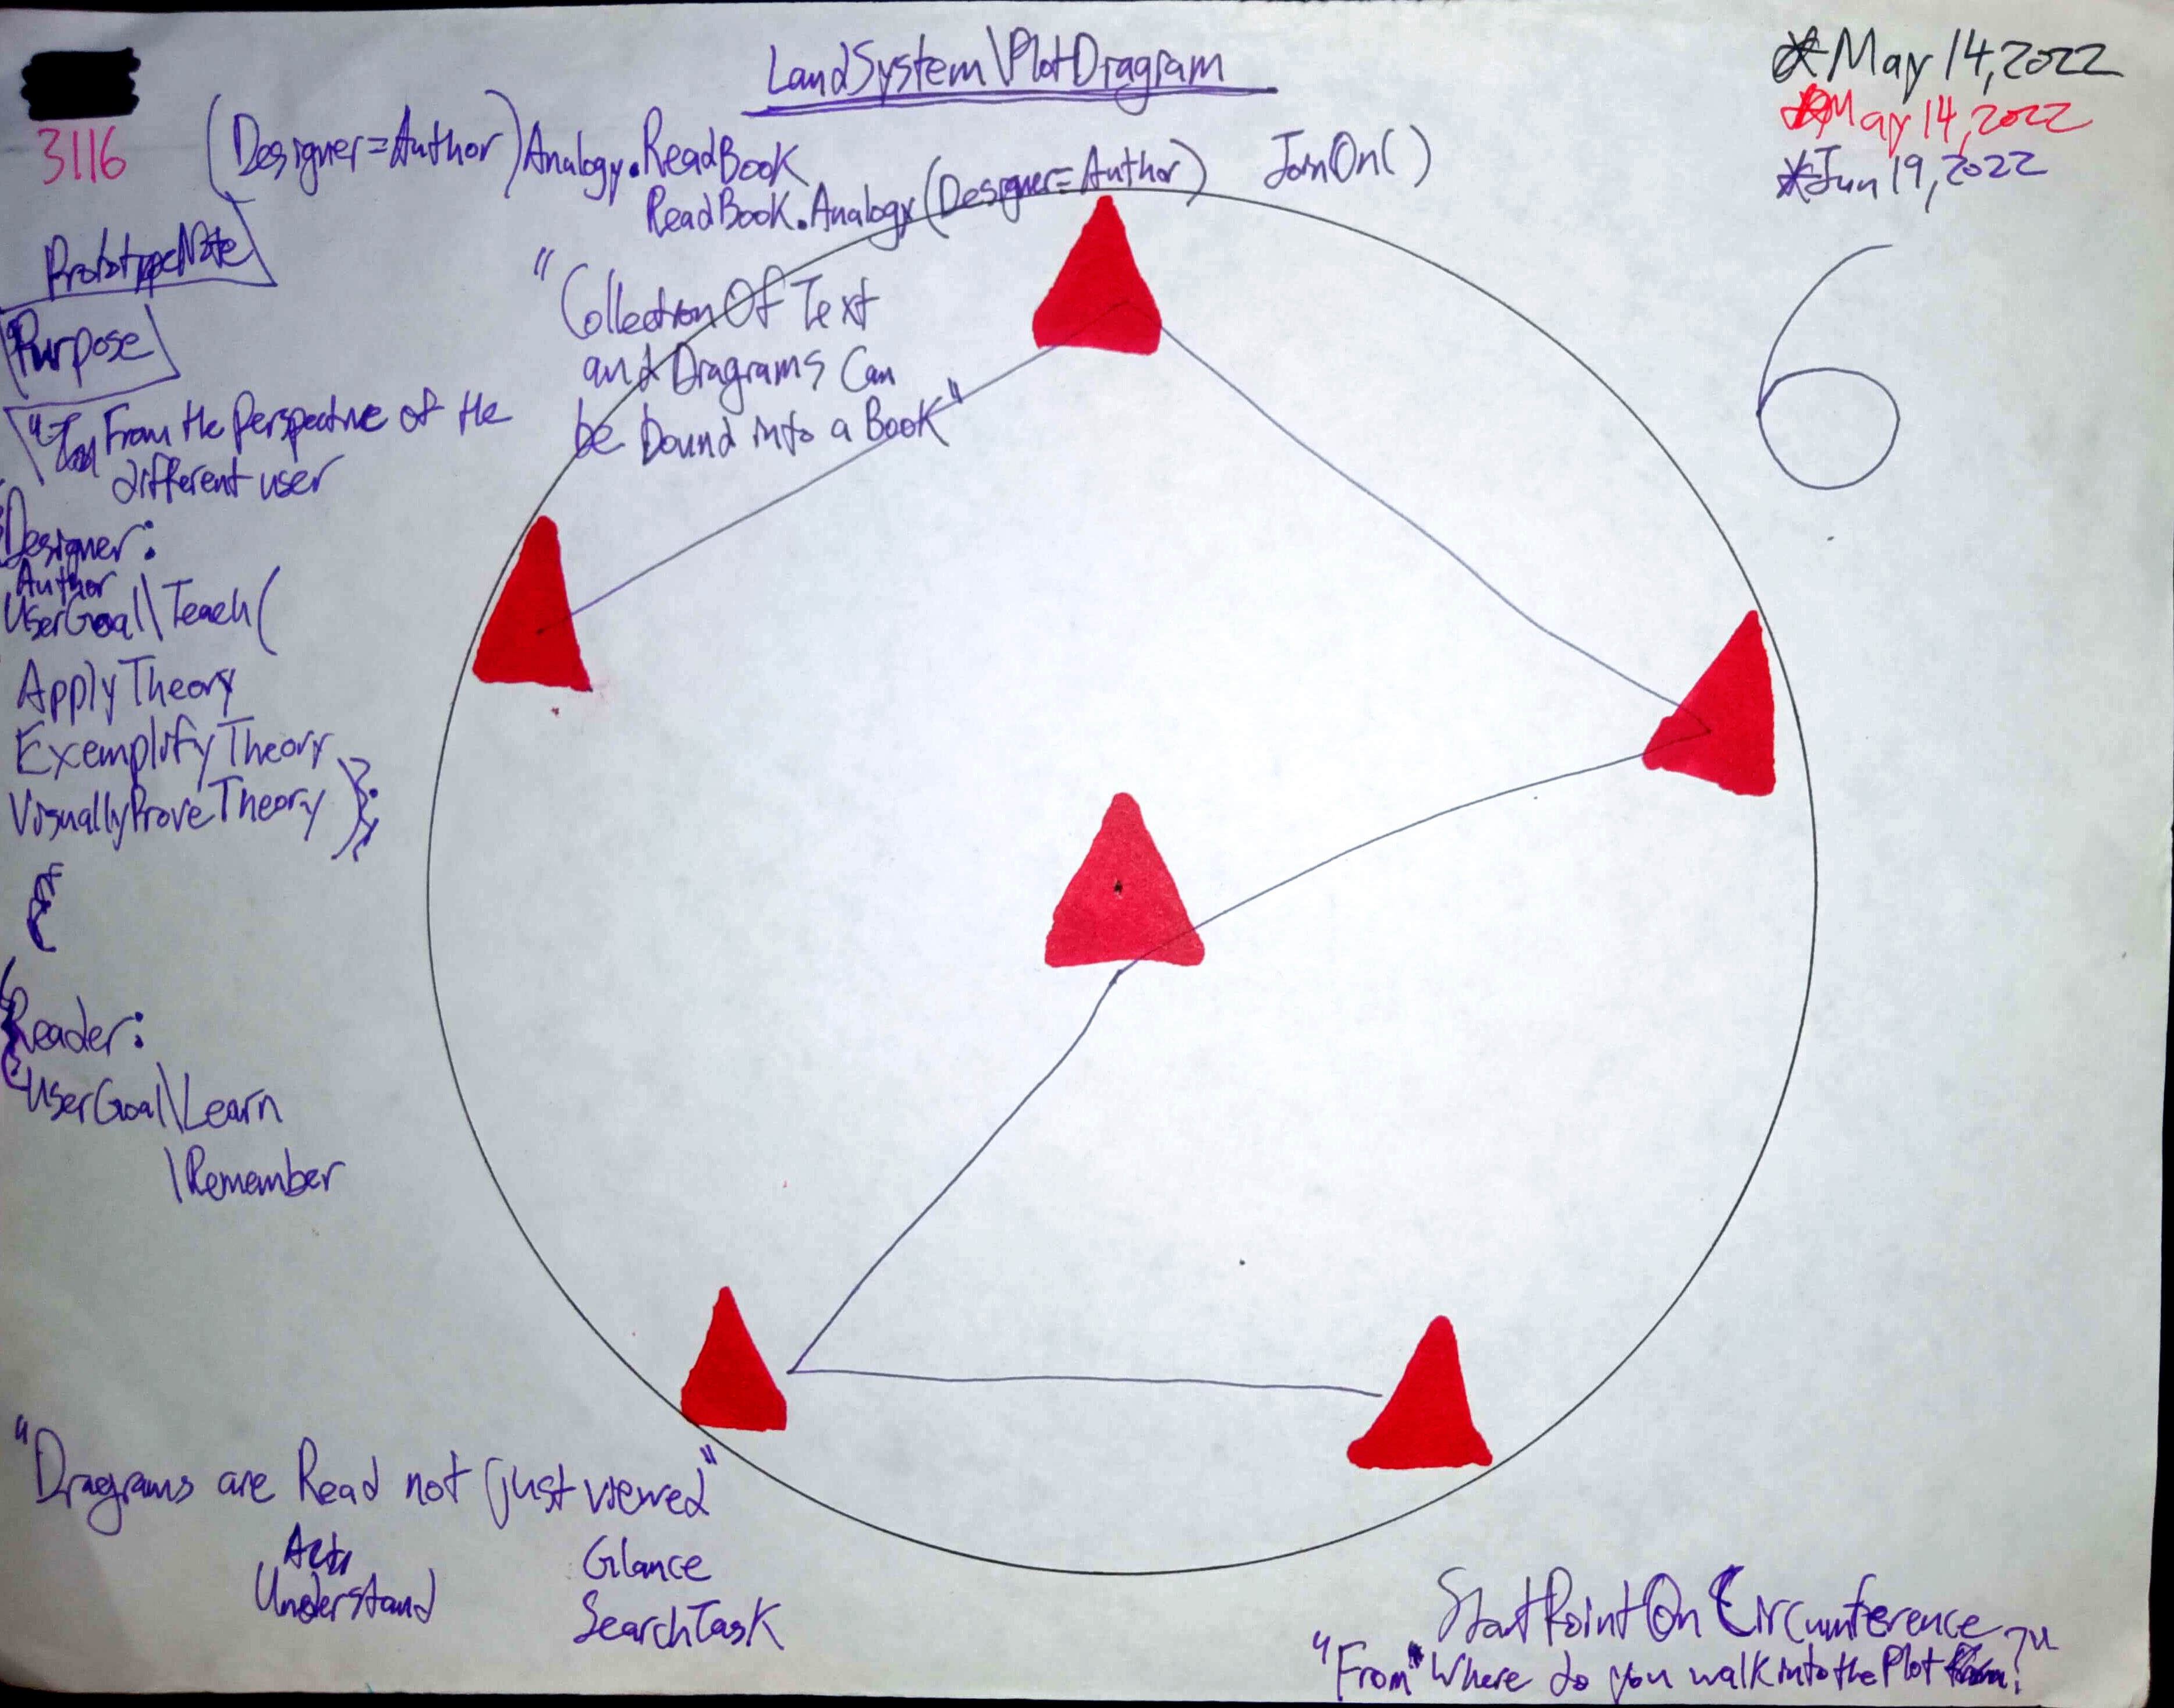 LandSystem\PlotDiagram
*May 14, 2022
*May 14, 2022
*Jun 19, 2022
3116
(Designer=Author)Analogy.ReadBook
ReadBook.Analogy(Designer=Author)
JoinOn()
PrototypeNote
Purpose
"From the Perspective of the
different user
"Collection Of Text
and Diagrams Can
be bound into a Book"
6
Designer:
Author
UserGoal\Teach(
ApplyTheory
ExemplifyTheory
VisuallyProveTheory)};
{
Reader:
UserGoal\Learn
\Remember
"Diagrams are Read not (just viewed"
Understand
Glance
SearchTask
StartPointOnCircumference
"From Where do you walk into the Plot ?"